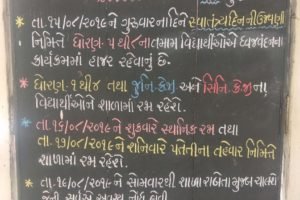 * તા.૧૫/૦૮/૨૦૧૯ ને ગુરુવારના દિને સ્વાતંત્ર્યદિનની ઉજવણી
નિમિત્તે ધોરણ ૫ થી ૮ ના તમામ વિદ્યાર્થીઓએ ધ્વજવંદનના
કાર્યક્રમમાં હાજર રહેવાનું છે.
* ધોરણ ૧ થી ૪ તથા જુનિ.કેજી અને સિનિ.કેજીના
વિદ્યાર્થીઓને શાળામાં રજા રહેશે.
* તા.૧૬/૦૮/૨૦૧૯ ને શુક્રવારે સ્થાનિક રજા તથા
તા.૧૭/૦૮/૨૦૧૯ ને શનિવારે પતેતીના તહેવાર નિમિત્તે
શાળામાં રજા રહેશે.
* તા.૧૯/૦૮/૨૦૧૯ ને સોમવારથી શાળા રાબેતા મુજબ ચાલશે
જેની સર્વેએ અવશ્ય નોંધ લેવી